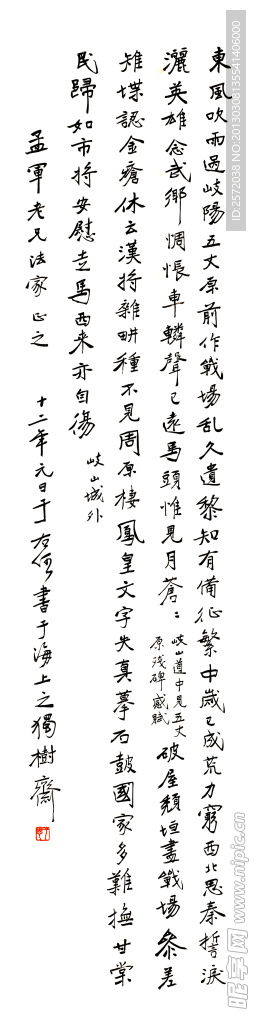 東風吹雨過岐陽五丈原前作戰場乱久遺黎知有備征繁中歲已成荒力窮西北思秦誓淚
灑英雄念武鄉惆悵車轔聲已遠馬頭惟見月蒼:岐山道中見五丈原殘碑感賦破屋頹垣盡戰場參差
雉堞認金瘡休云漢將雜畊種不見周原棲鳳皇文字失真摹石鼓國家多難撫甘棠
民歸如市將安慰走馬西來亦自傷
岐山城外
孟軍老兄法家正之
十二年元日于右任書于海上之獨樹齋
ID:2572038 NO:20130308135541406000
昵图网 www.nipic.cn